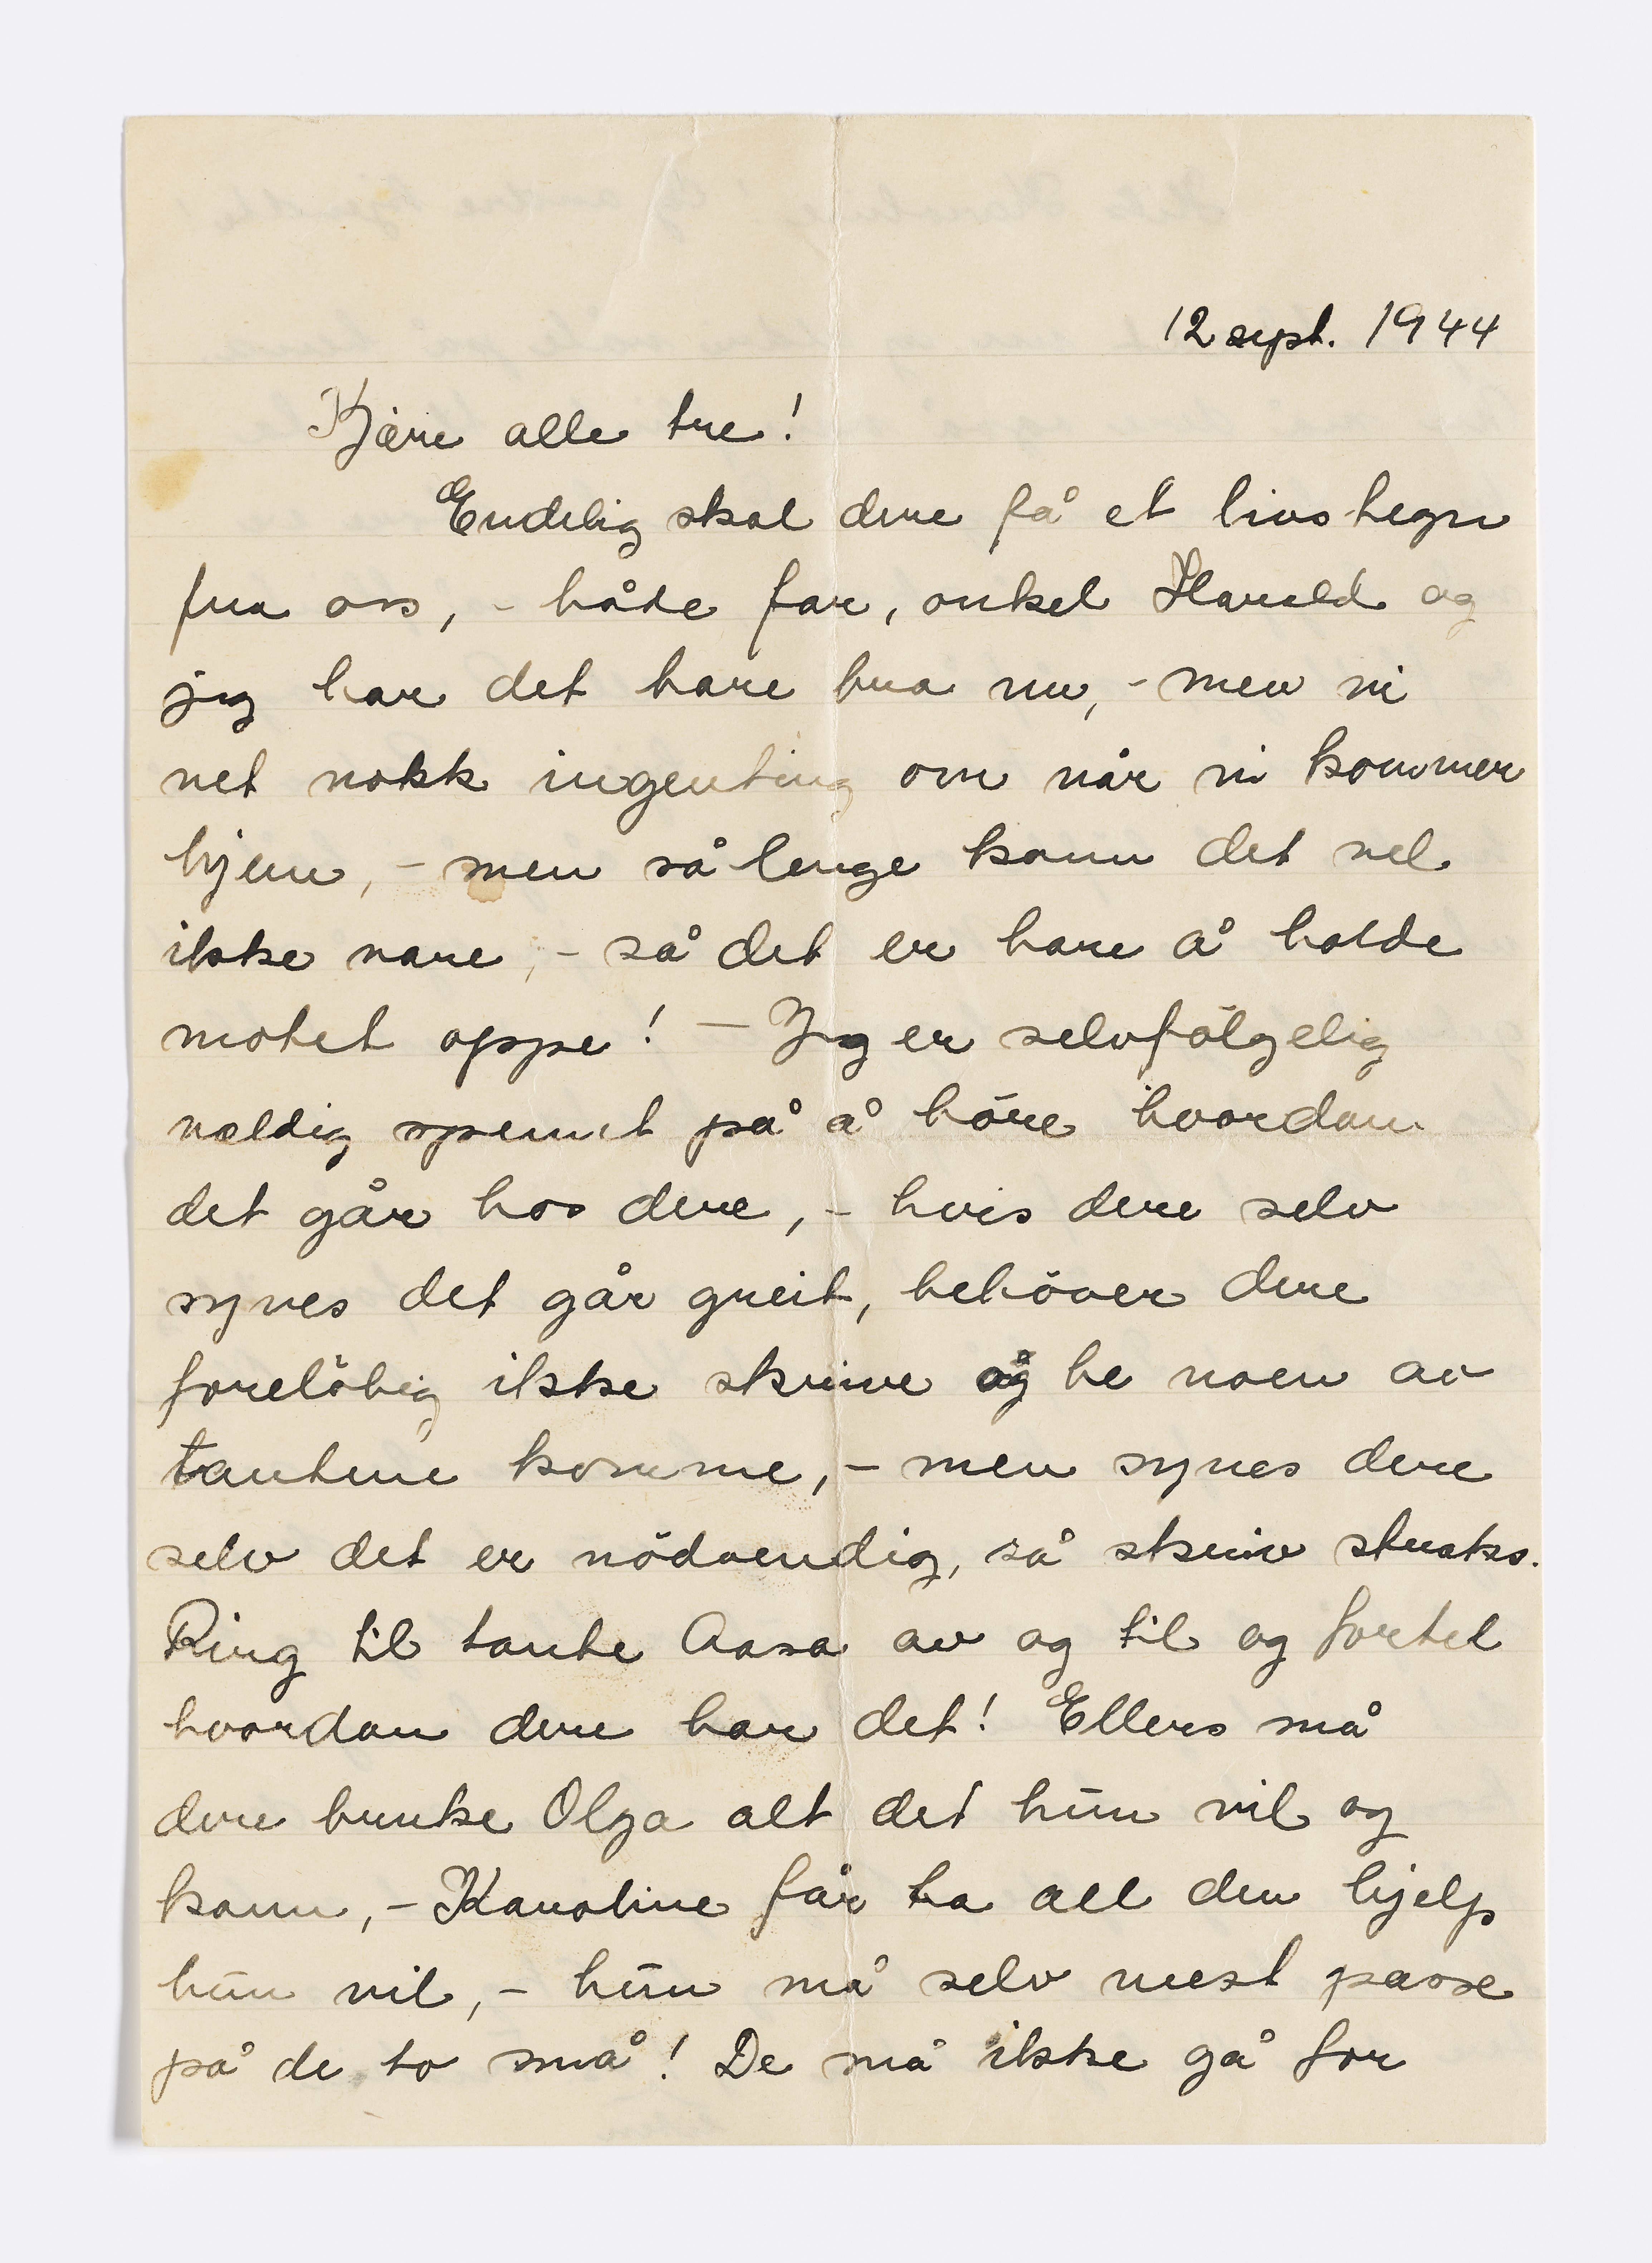 12 sept. 1944
Kjære alle tre!
Endelig skal dere få et livstegn
fra oss, - både far, onkel Harald og
jeg har det bare bra nu, - men vi
vet nokk ingenting om når vi kommer
hjem, - men så lenge kann det vel
ikke vare, - så det er bare å holde
motet oppe! - Jeg er selvfölgelig
veldig spennt på å höre hvordan
det går hos dere, - hvis dere selv
synes det går greit, behöver dere
forelöbig ikke skrive og be noen av
tantene komme, - men synes dere
selv det er nödvendig, så skriv straks.
Ring til tante Aasa av og til og fortel
hvordan dere har det! Ellers må
dere bruke Olga alt det hūn vil og
kann, - Karoline får ta all den hjelp
hūn vil, - hūn må selv mest passe
på de to små! De må ikke gå for